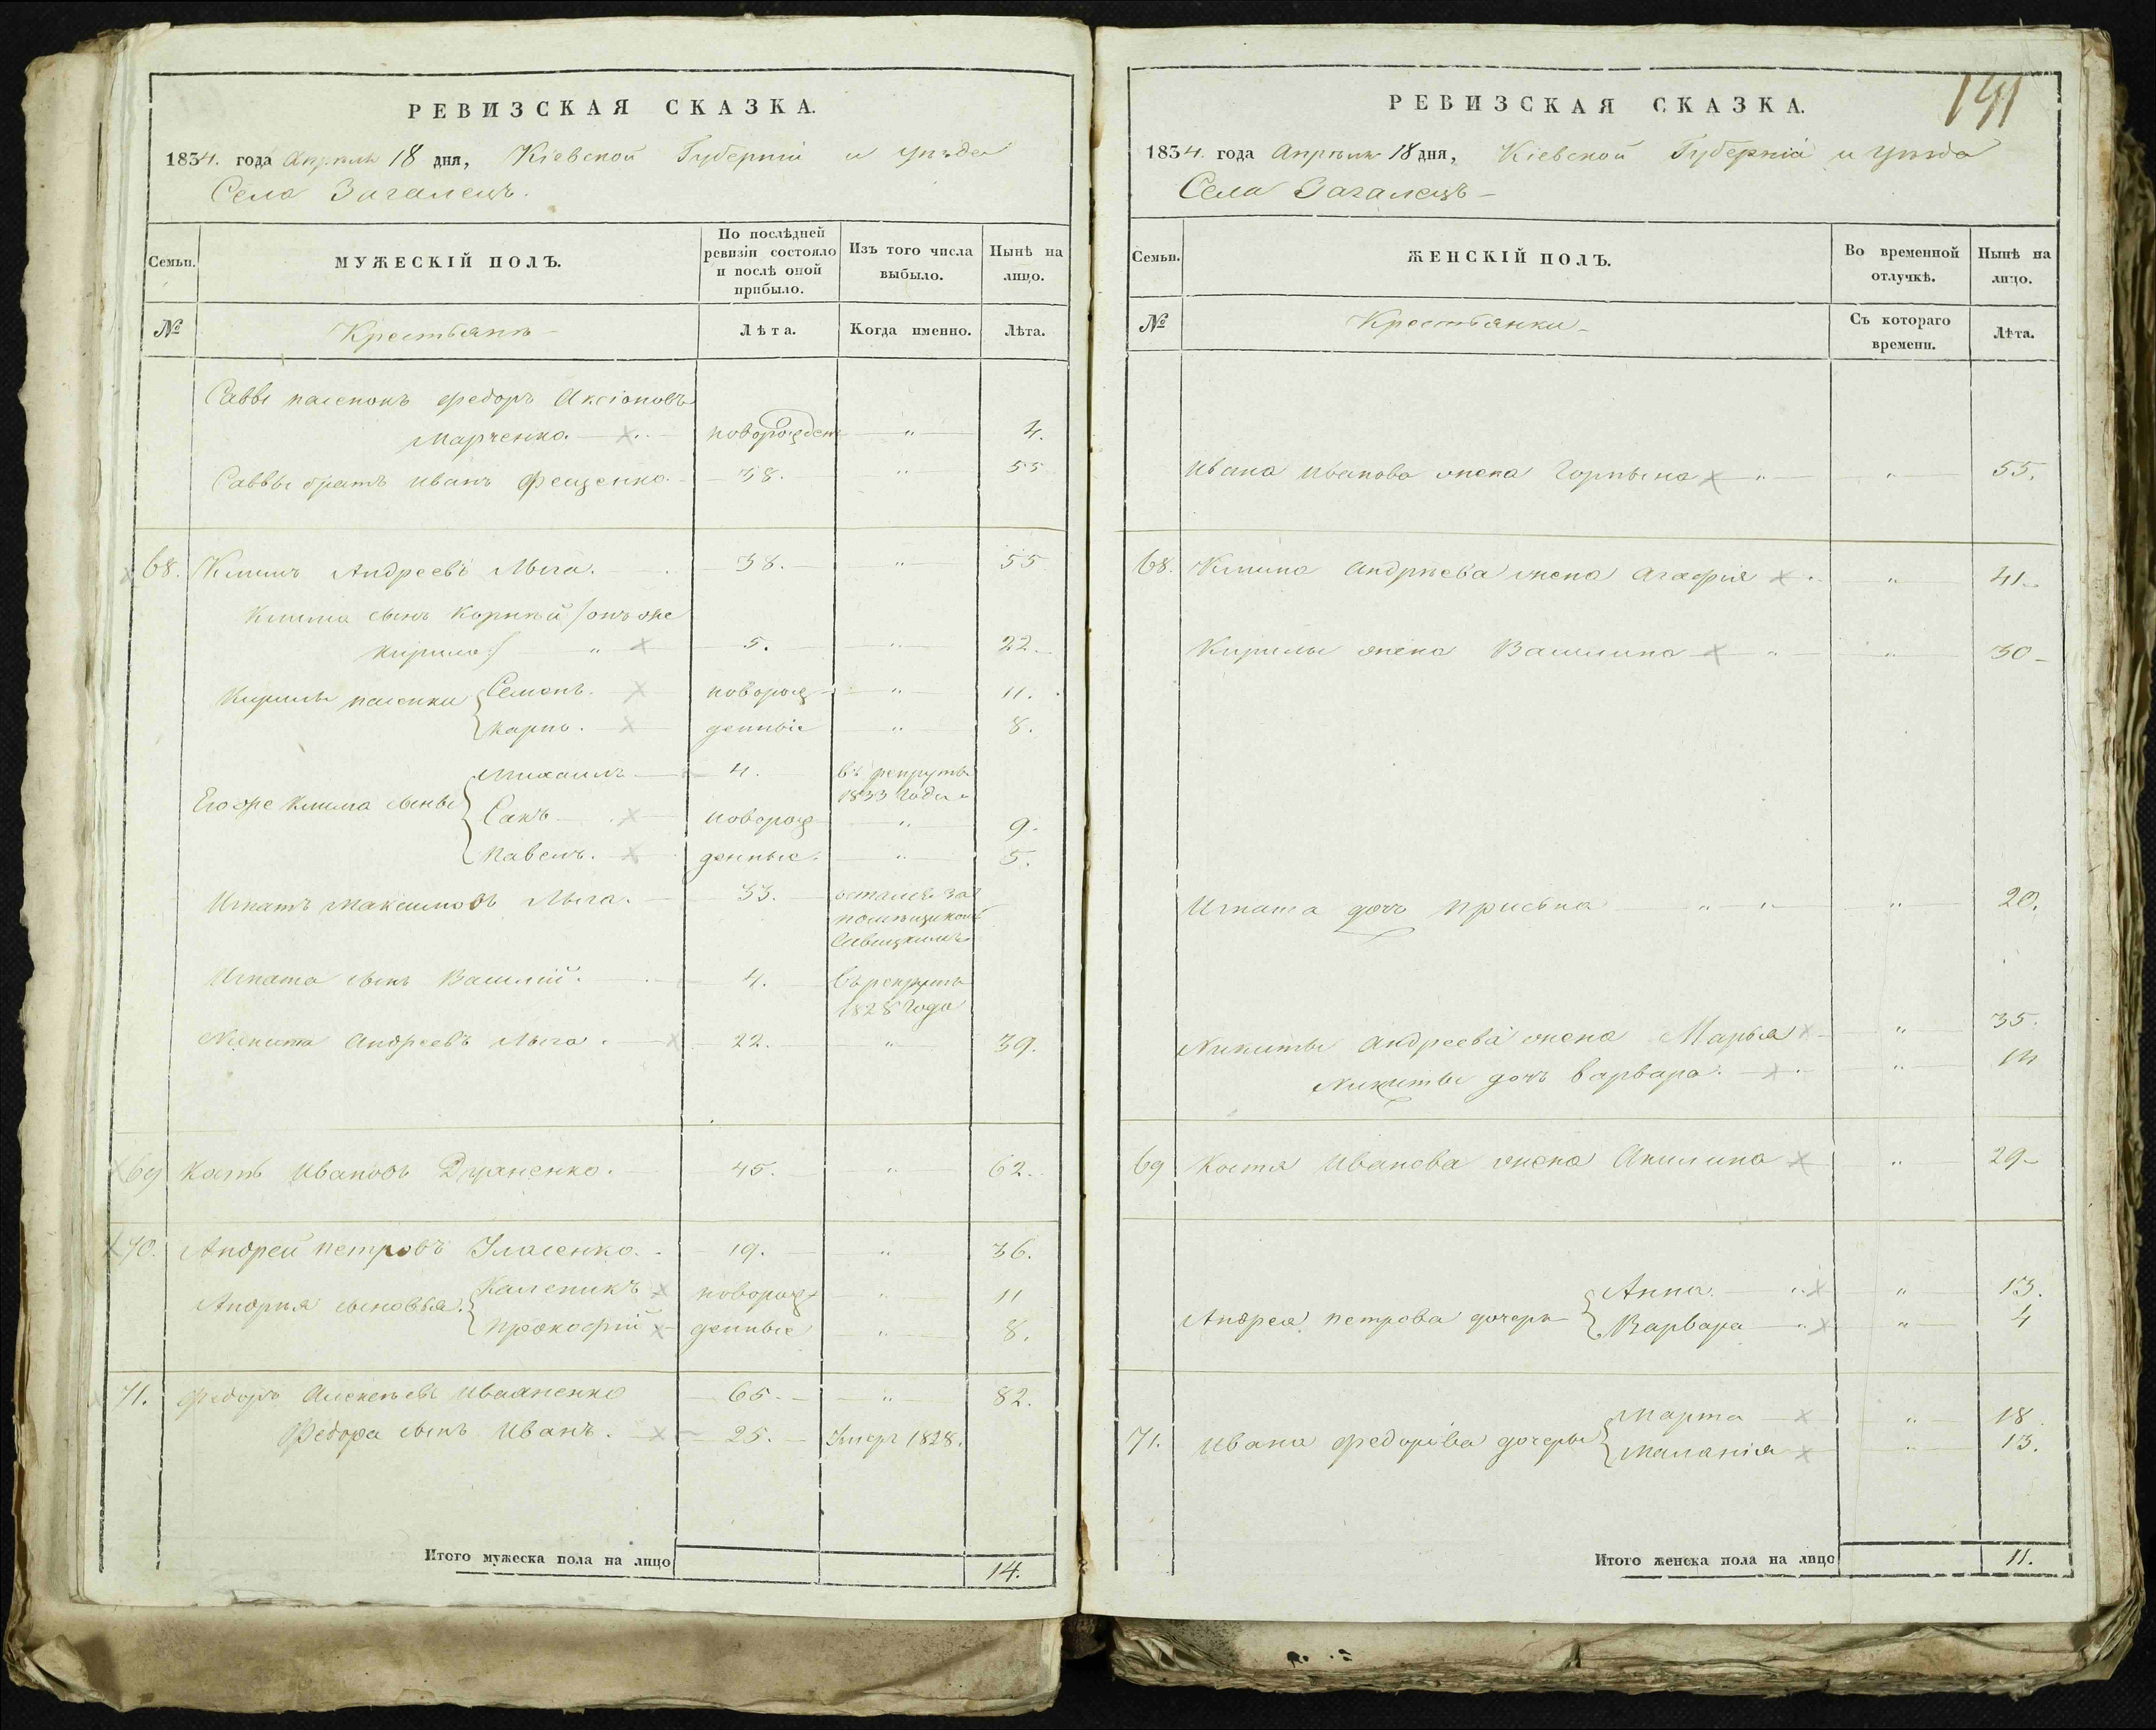 РЕВИЗСКАЯ СКАЗКА.
1834. года Апрѣля 18 дня, Кіевской Губерніи и уѣзда
Села Загалецъ.
Семьи.
МУЖЕСКІЙ ПОЛЪ.
По послѣдней ревизіи состояло и послѣ оной прибыло.
Изъ того числа выбыло.
Нынѣ на лицо.
№
Крестьянъ
Лѣта.
Когда именно.
Лѣта.
Саввы пасенокъ Федоръ Аксіоновъ
Марченко. новорожден " 4.
Саввы братъ Иванъ Фещенко. 38. " 55
68. Климъ Андреевъ Лыга. 38. " 55
Клима сынъ Корнѣй /онъ же
Кирило/ " 5. " 22.
Кирилы пасенки Семенъ. новорож " 11.
Карпъ. денныіе " 8.
Его же Клима сыны Михаилъ 4. въ рекруты
1833 года
Сакъ новорож " 9.
Павелъ. денные. " 5.
Игнатъ Максимовъ Лыга. 33. остался за
помѣщикомъ
Савицкимъ
Игната сынъ Василій. 4. въ рекруты
1828 года
Никита Андреевъ Лыга. 22. " 39.
69 Кость Ивановъ 45. " 62.
70. Андрей Петровъ 19. " 36.
Андрея сыновья Каленикъ новорож " 11
Прокофій денные " 8.
71. Федоръ Алексѣевъ Иваненко 65. " 82.
Федора сынъ Иванъ. 25. Умеръ 1828.
Итого мужеска пола на лицо 14.
191
РЕВИЗСКАЯ СКАЗКА.
1834. года Апрѣля 18 дня, Кіевской Губерніи и уѣзда
Села Загалецъ
Семьи.
ЖЕНСКІЙ ПОЛЪ.
Во временной отлучкѣ.
Нынѣ на лицо.
№
Крестьянки
Съ котораго времени.
Лѣта.
Ивана Иванова жена Горпына " " 55.
68. Клима Андрѣева жена Агафія " 41.
Кирилы жена Василина " " 30
Игната дочь Приська " " " 20.
Никиты Андреева жена Марья " 35.
Никиты дочь Варвара. " 14
69 Костя Иванова жена Акилина " 29
Андрея Петрова дочери Анна. " " 13.
Варвара " " 4
71. Ивана Федорова дочеры Марта " 18
Маланія " 13.
Итого женска пола на лицо 11.